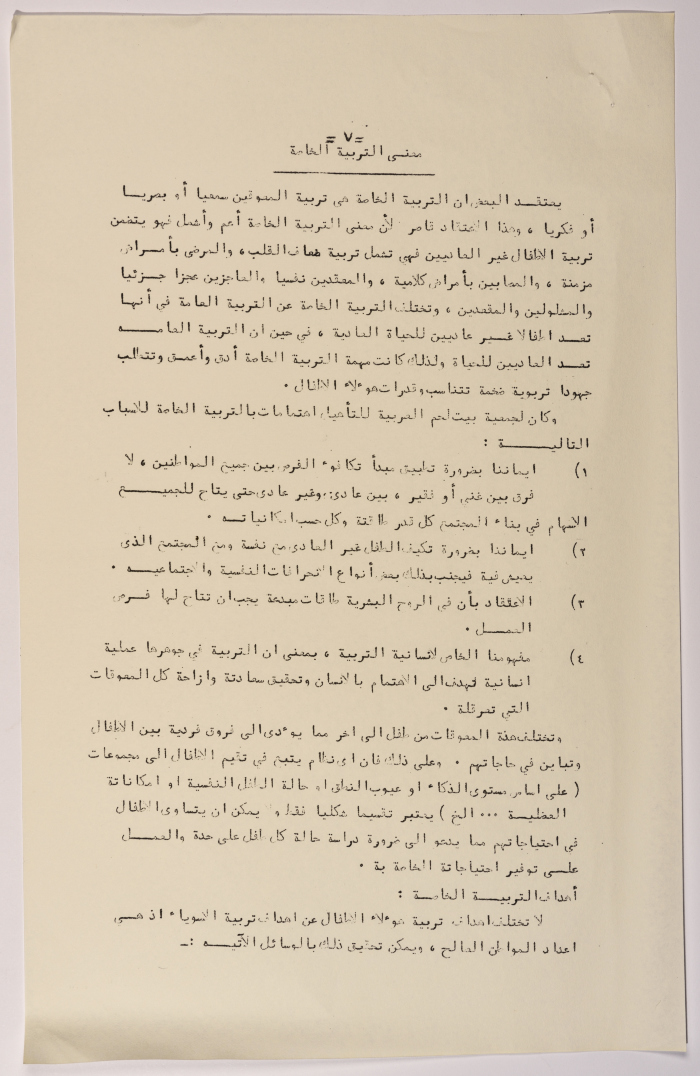 = ٧ =
معنى التربية الخاصة
يعتقد البعض ان التربية الخاصة هي تربية المعوقين سمعيا أو بصريا
أو فكريا ، وهذا اعتقاد قاصر لأن معنى التربية الخاصة أعم وأشمل فهو يتضمن
تربية الاطفال غير العاديين فهي تشمل تربية ضعاف القلب ، والمرضى بأمراض
مزمنة ، والمصابين بأمراض كلامية ، والمعقدين نفسيا والعاجزين عجزا جزئيا
والمشلولين والمقعدين ، وتختلف التربية الخاصة عن التربية العامة في أنها
تعد اطفالا غير عاديين للحياة العادية ، في حين ان التربية العامه
تعد العاديين للحياة ولذلك كانت مهمة التربية الخاصة أدق وأعمق وتتطلب
جهودا تربوية ضخمة تتناسب وقدرات هوءلاء الاطفال ٠
وكان لجمعية بيت لحم العربية للتأهيل اهتمامات بالتربية الخاصة للاسباب
التالية :
١) ايماننا بضرورة تطبيق مبدأ تكافوء الفرص بين جميع المواطنين ، لا
فرق بين غني أو فقير ، بين عادي وغير عادي حتى يتاح للجميع
الاسهام في بناء المجتمع كل قدر طاقتة وكل حسب امكانياته ٠
٢) ايماننا بضرورة تكيف الطفل غير العادي مع نفسة ومع المجتمع الذي
يعيش فية فيجنب بذلك بعض أنواع الانحرافات النفسية والاجتماعيه ٠
٣) الاعتقاد بأن في الروح البشرية طاقات مبدعة يجب ان تتاح لها فرص
العمل ٠
٤) مفهومنا الخاص لانسانية التربية ، بمعنى ان التربية في جوهرها عملية
انسانية تهدف الى الاهتمام بالانسان وتحقيق سعادتة وازاحة كل المعوقات
التي تعرقلة ٠
وتختلف هذة المعوقات من طفل الى اخر مما يوءدى الى فروق فردية بين الاطفال
وتباين في حاجاتهم ٠ وعلى ذلك فان اى نظام يتبع في تقيم الاطفال الى مجموعات
( على اساس مستوى الذكاء او عيوب النطق او حالة الطفل النفسية او امكاناتة
العقلية ٠٠٠ الخ ) يعتبر تقسيما شكليا فقط ولا يمكن ان يتساوى الاطفال
في احتياجاتهم مما يدعو الى ضرورة دراسة حالة كل طفل على حدة والعمل
على توفير احتياجاتة الخاصة بة ٠
أهداف التربية الخاصة :
لا تختلف اهداف تربية هوءلاء الاطفال عن اهداف تربية الاسوياء اذ هي
اعداد المواطن الصالح ، ويمكن تحقيق ذلك بالوسائل الآتيه :ـ